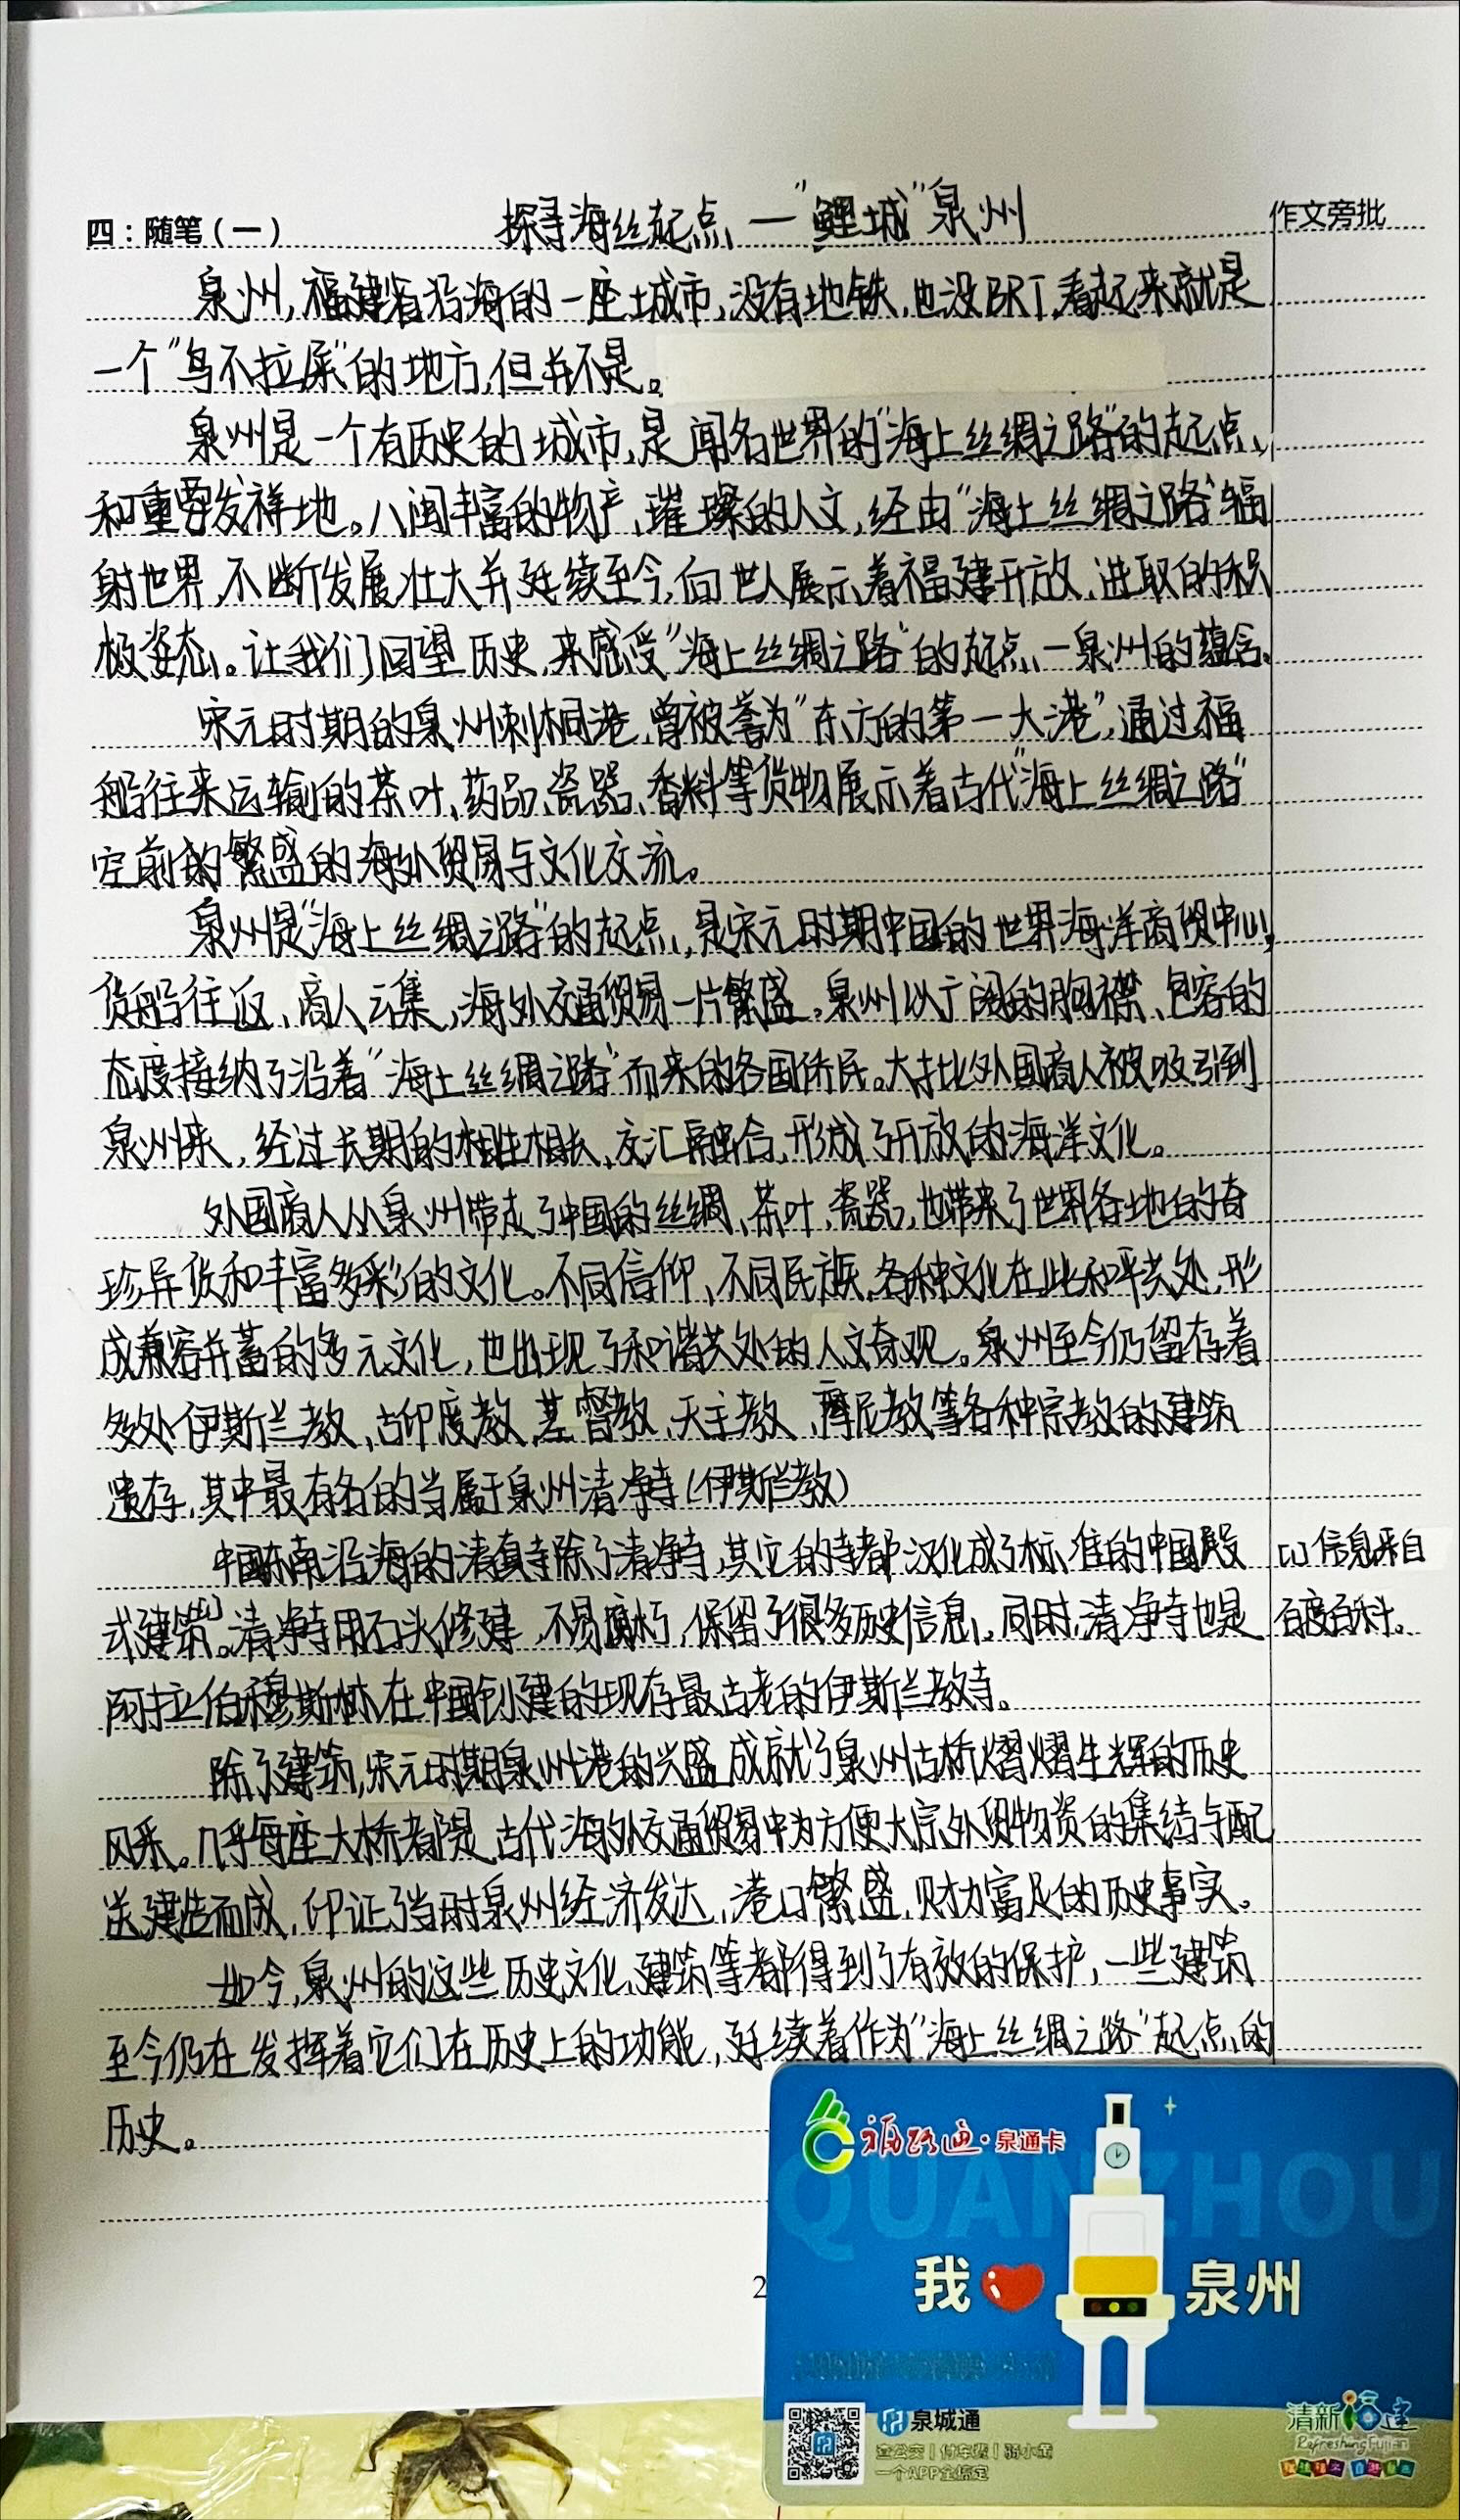 四：随笔（一） 探寻海丝起点—“鲤城”泉州 作文旁批
泉州，福建省沿海的一座城市，没有地铁，也没BRT，看起来就是
一个“鸟不拉屎”的地方，但并不是。
泉州是一个有历史的城市，是闻名世界的“海上丝绸之路”的起点、
和重要发祥地。八闽丰富的物产、璀璨的人文，经由“海上丝绸之路”辐
射世界，不断发展壮大并延续至今，向世人展示着福建开放、进取的积
极姿态。让我们回望历史，来感受“海上丝绸之路”的起点—泉州的蕴含。
宋元时期的泉州刺桐港，曾被誉为“东方的第一大港”，通过福
船往来运输的茶叶、药品、瓷器、香料等货物展示着古代“海上丝绸之路”
空前的繁盛的海外贸易与文化交流。
泉州是“海上丝绸之路”的起点，是宋元时期中国的世界海洋商贸中心，
货船往返、商人云集，海外交通贸易一片繁盛。泉州以广阔的胸襟、包容的
态度接纳了沿着“海上丝绸之路”而来的各国侨民。大批外国商人被吸引到
泉州来，经过长期的相生相长、交汇融合，形成了开放的海洋文化。
外国商人从泉州带走了中国的丝绸、茶叶、瓷器，也带来了世界各地的奇
珍异货和丰富多彩的文化。不同信仰、不同民族、各种文化在此和平共处，形
成兼容并蓄的多元文化，也出现了和谐共处的人文奇观。泉州至今仍留存着
多处伊斯兰教、古印度教、基督教、天主教、摩尼教等各种宗教的建筑
遗存，其中最有名的当属于泉州清净寺（伊斯兰教）
中国东南沿海的清真寺除了清净寺，其它的寺都汉化成了标准的中国殿 [1]信息来自
式建筑[1]。清净寺用石头修建，不易腐朽，保留了很多历史信息。同时，清净寺也是 百度百科。
阿拉伯穆斯林在中国创建的现存最古老的伊斯兰教寺。
除了建筑，宋元时期泉州港的兴盛，成就了泉州古桥熠熠生辉的历史
风采。几乎每座大桥都是古代海外交通贸易中为方便大宗外贸物资的集结与配
送建造而成，印证了当时泉州经济发达、港口繁盛、财力富足的历史事实。
如今，泉州的这些历史文化、建筑等都得到了有效的保护，一些建筑
至今仍在发挥着它们在历史上的功能，延续着作为“海上丝绸之路”起点的
历史。
2
福路通·泉通卡
QUANZHOU
我 泉州
泉城通
查公交｜付车费｜骑小黄
一个APP全搞定
清新福建
Refreshing Fujian